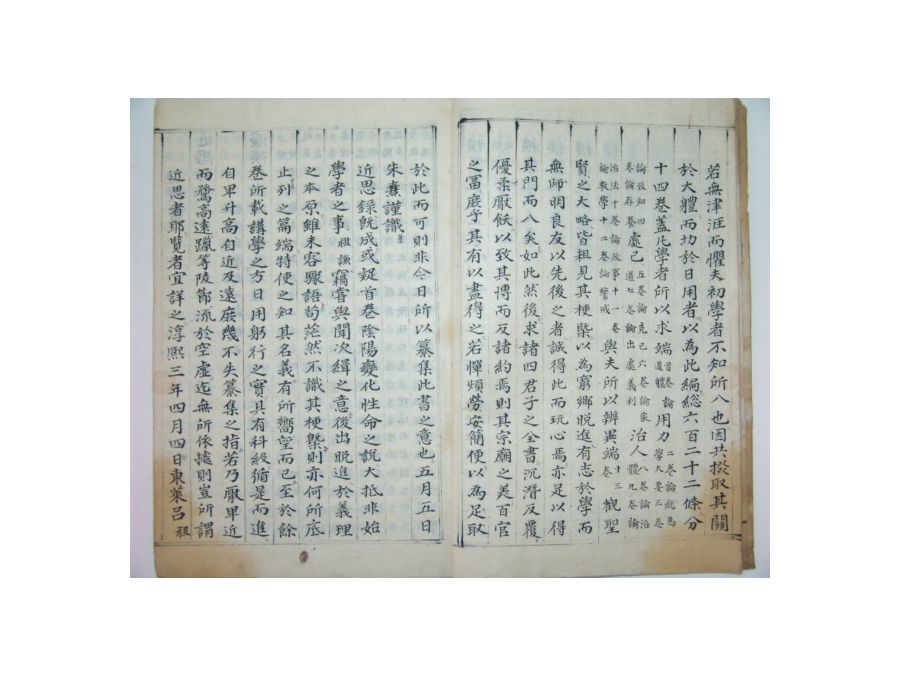 若無津涯而懼夫初學者不知所入也因共掇取其關
於大體而切於日用者以為此編総六百二十二條分
十四卷盖凡學者所以求端首卷論道體用力二卷論緫為學大要三卷
論致知四卷論存養處己五卷論克己六卷論家道七卷論出處義利治人八卷論治體九卷論
治法十卷論政事十一卷論教學十二卷論警戒與夫所以辨異端十三卷觀聖
賢之大略皆粗見其梗槩以為窮鄕晩進有志於學而
無師明良友以先後之者誠得此而玩心焉亦足以得
其門而入矣如此然後求諸四君子之全書沉潜反覆
優柔厭飫以致其博而反諸約焉則其宗廟之美百官
之富庶乎其有以盡得之若憚煩勞安簡便以為足取
於此而可則非今日所以纂集此書之意也五月五日
朱熹謹識
近思錄旣成或疑首卷陰陽變化性命之說大抵非始
學者之事祖謙竊嘗與聞次緝之意後出晩進於義理
之本原雖未容驟語苟茫然不識其梗槩則亦何所底
止列之篇端特使之知其名義有所嚮望而已至於餘
卷所載講學之方日用躬行之實具有科級循是而進
自卑升高自近及遠庶幾不失纂集之指若乃厭卑近
而騖高遠躐等陵節流於空虛迄無所依據則豈所謂
近思者耶覽者宜詳之淳熙三年四月四日東萊呂祖